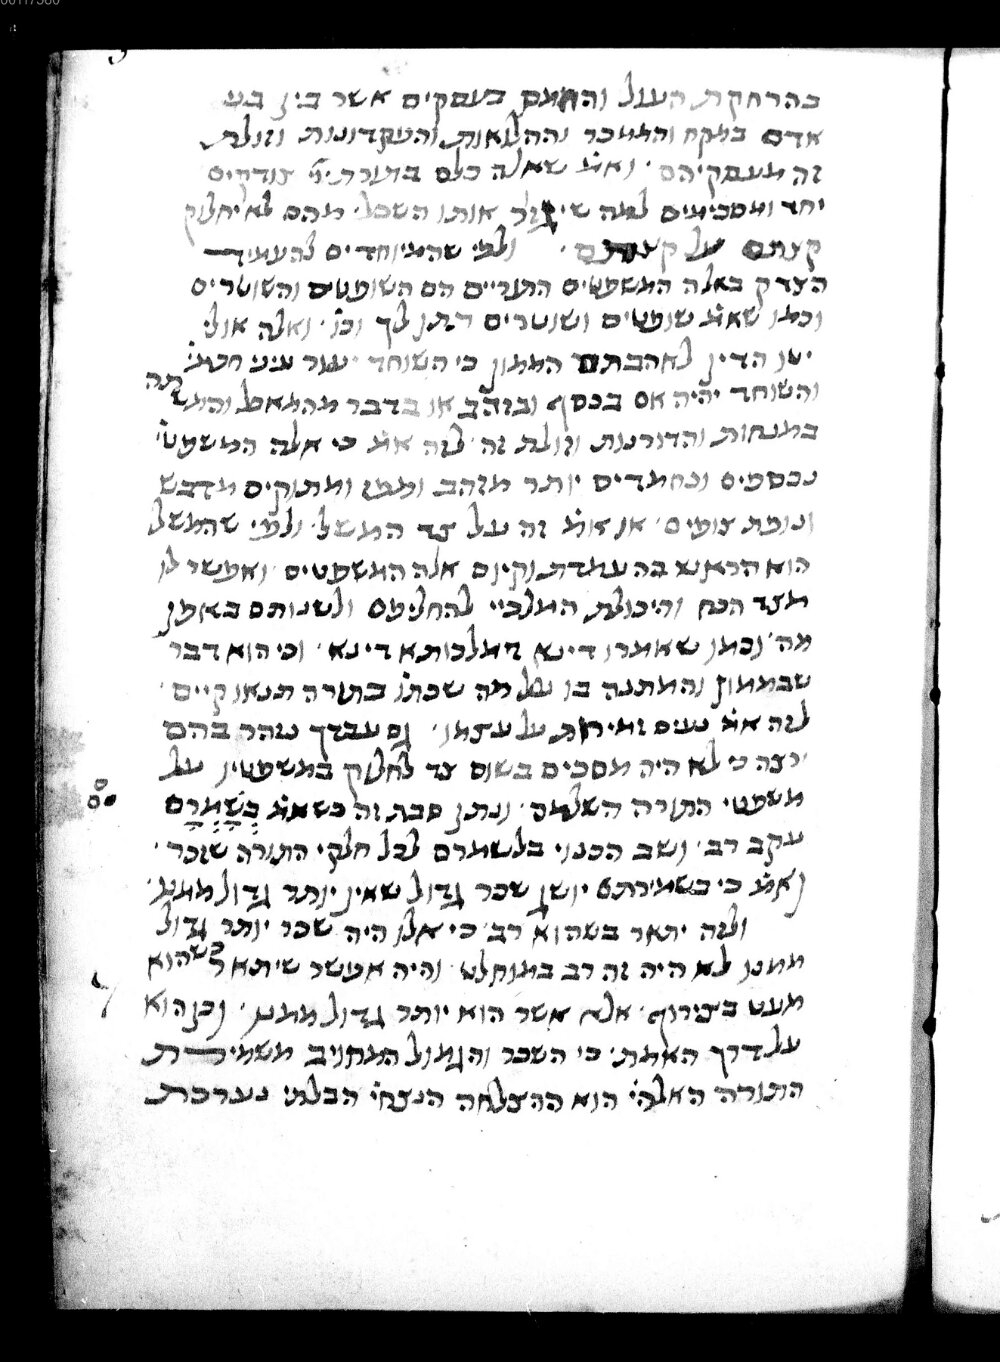 בהרחקת העול והחמס בעסקים אשר בין בני
אדם במקח והממכר וההלואות והפקדונות וזולת
זה מעסקיהם ׳ ואמ׳ שאלה כלם בתורת יי׳ צודקים
יחד ומסכימים למה שיגזר אותו השכל מהם לא יחלוק
קצתם על קצתם ׳ ולפי שהמיוחדים להעמיד
הצדק באלה המשפטים התוריים הם השופטים והשוטרים
וכמו שאמ׳ שופטים ושוטרים תתן לך וכו׳ ׳ ואלה אולי
יטו הדין לאהבתם הממון כי השוחד יעור עיני חכמי׳
והשוחד יהיה אם בכסף ובזהב או בדבר מהמאכל והמשתה
במנחות והדורונות וזולת זה ׳ לזה אמ׳ כי אלה המשפטי׳
נכספים ונחמדים יותר מזהב ומפז ומתוקים מדבש
ונופת צופים ׳ או אמ׳ זה על צד המשל ׳ ולפי שהמושל
הוא הראש בהעמדת וקיום אלה המשפטים ׳ ואפשר לו
מצד הכח והיכולת המלכיי להחליפם ולשנותם באופן
מה ׳ וכמו שאמרו דינא דמלכותא דינא ׳ וכי הוא דבר
שבממון והמתנה בו על מה שכתו׳ בתורה תנאו קיים ׳
לזה אמ׳ נעים זמירות על עצמו ׳ גם עבדך נזהר בהם
ירצה כי לא היה מסכים בשום צד לחלוק במשפטיו על
משפטי התורה השלמה ׳ ונתן סבת זה כשאמ׳ בשמרם
עקב רב ׳ ושב הכנוי בלשמרם לכל חלקי התורה שזכר ׳
ואמ׳ כי בשמירתם יושג שכר גדול שאין יותר גדול ממנו ׳
ולזה יתאר בשהוא רב ׳ כי אלו היה שכר יותר גדול
ממנו לא היה זה רב במוחלט ׳ והיה אפשר שיתאר כשהוא
מעט בצירוף ׳ אלא אשר הוא יותר גדול ממנו ׳ וכן הוא
על דרך האמת ׳ כי השכר והגמול המחוייב משמירת
התורה האלהי׳ הוא ההצלחה הנצחי׳ הבלתי נערכת